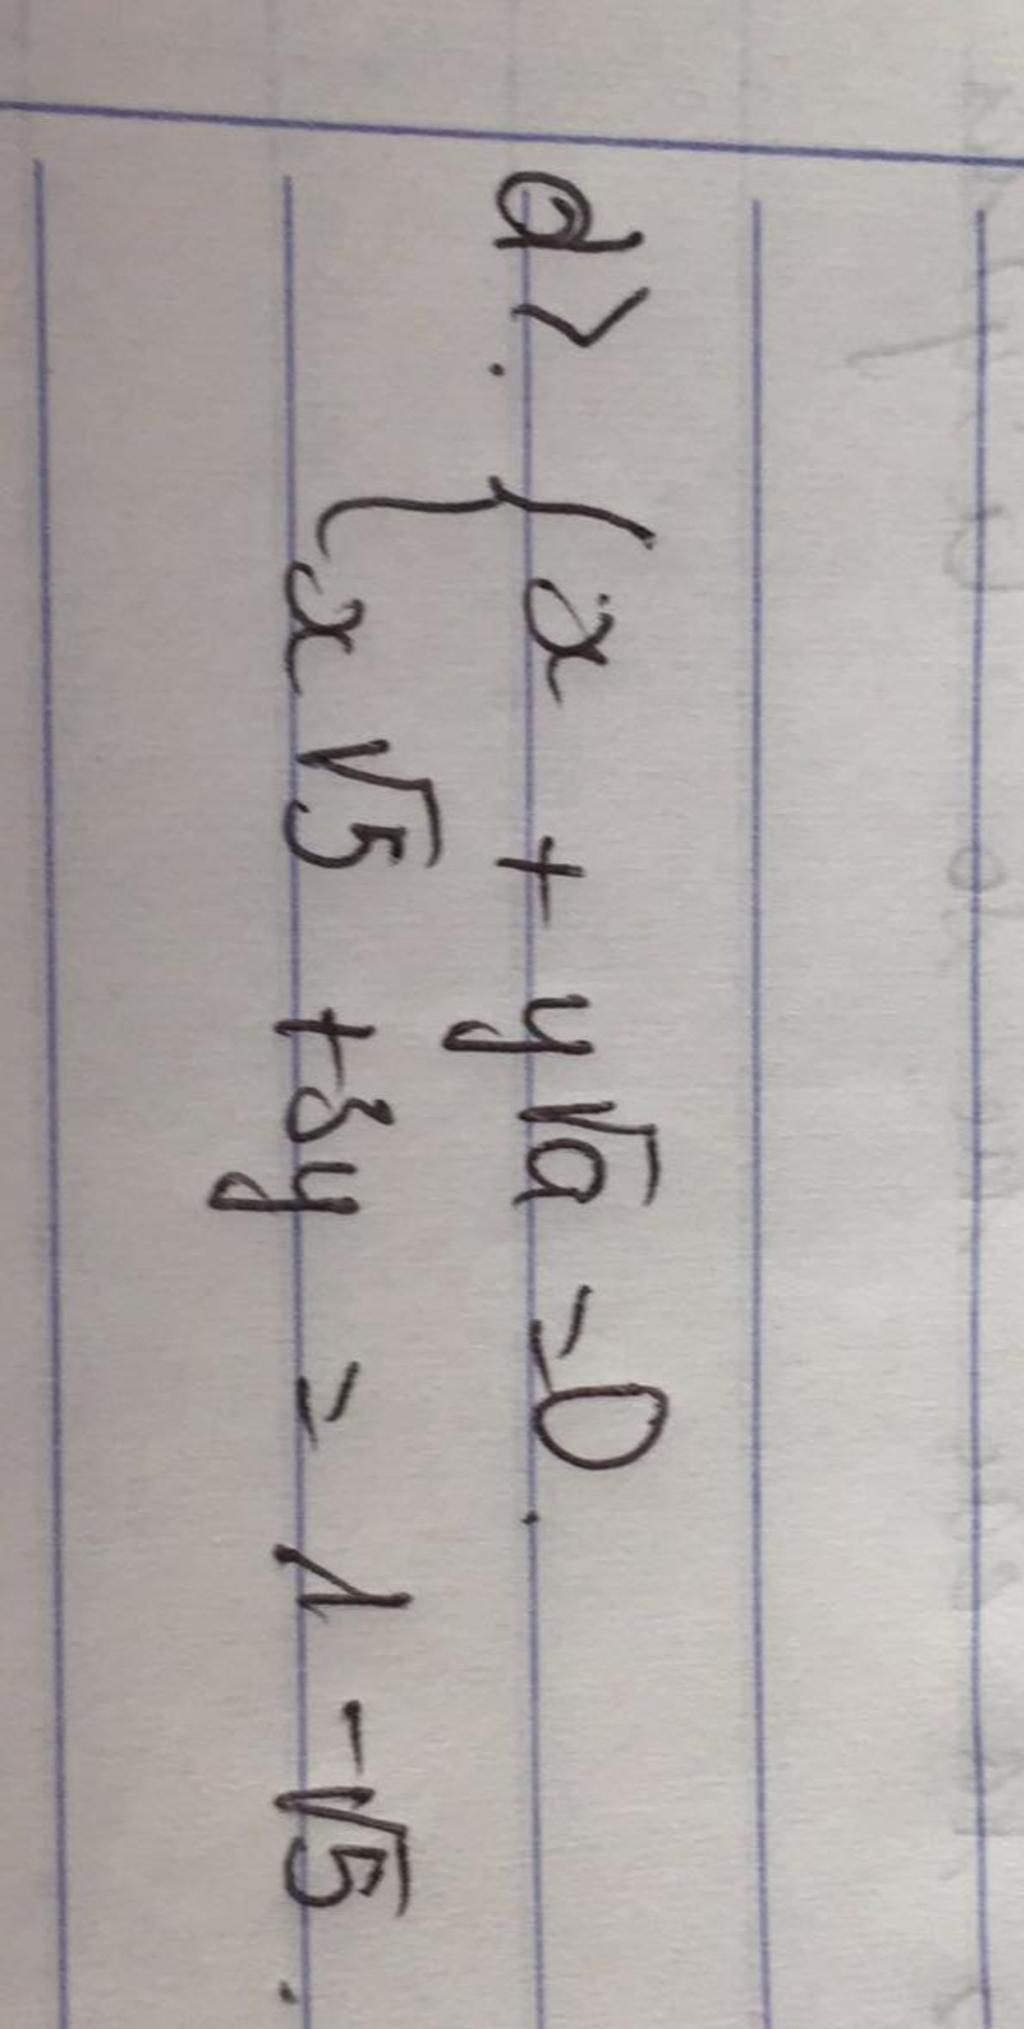 d>. { x + y√a = 0.
x√5 + 3y = 1 - √5.